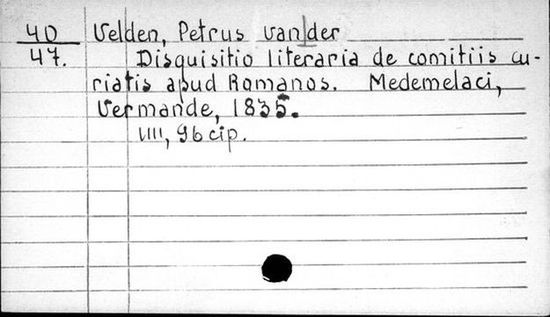 40 Velden, Petrus van der
47. Disquisitio literaria de comitiis cu-
riatis apud Romanos. Medemelaci,
Vermande, 1835.
VIII, 96 стр.